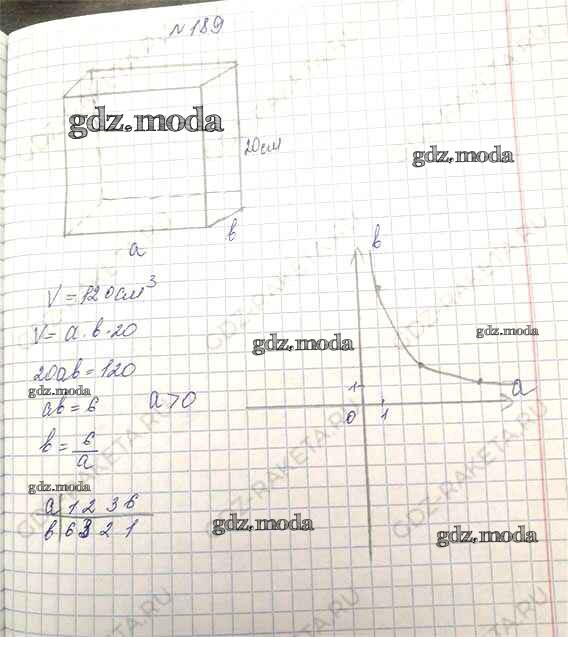 №189
gdz.moda
20см
gdz.moda
в
а
в
V = 120см³
V = а·в·20
gdz.moda
gdz.moda
20ав = 120
gdz.moda
ав = 6 а>0
1
а
0 1
в = 6/а
gdz.moda
а 1 2 3 6
в 6 3 2 1
gdz.moda
gdz.moda
GDZ-RAKETA.RU
GDZ-RAKETA.RU
GDZ-RAKETA.RU